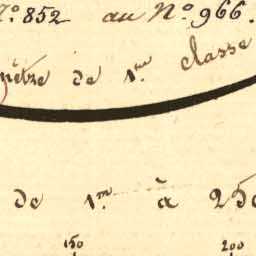 N.º 852 au N.º 966.
mètre de 1.re classe
de 1.m à 250
150 200